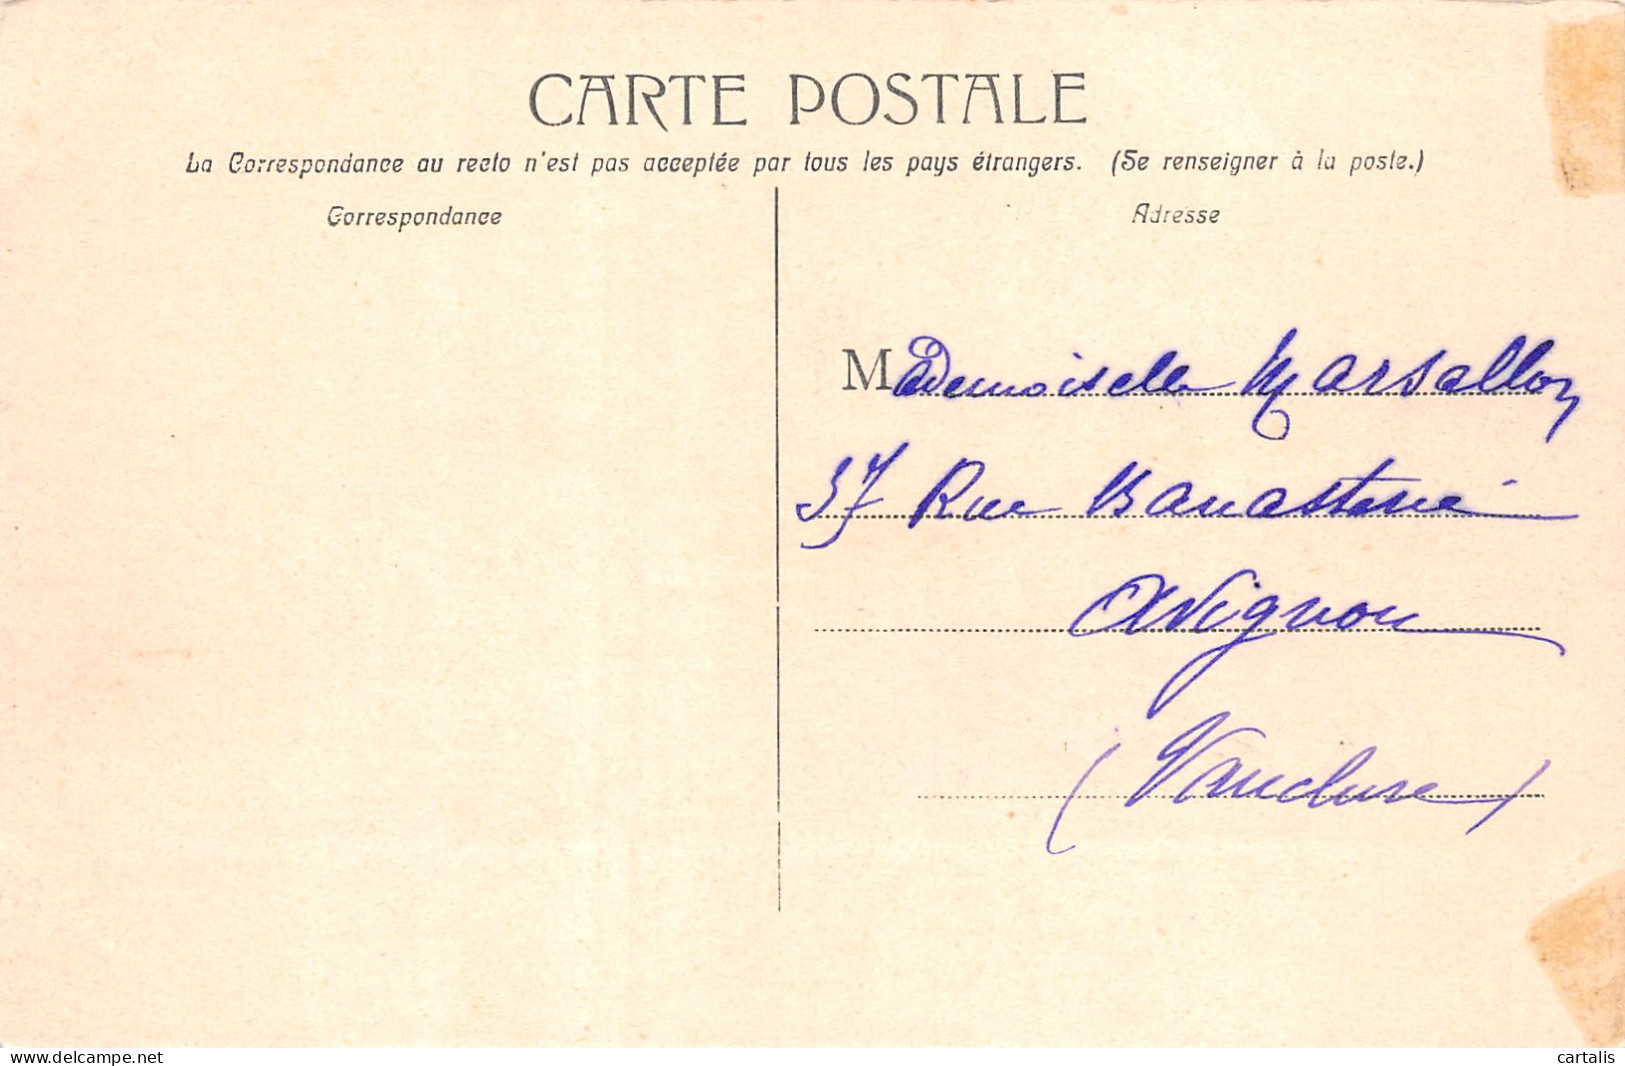 CARTE POSTALE
La Correspondance au recto n'est pas acceptée par tous les pays étrangers. (Se renseigner à la poste.)
Correspondance
Adresse
Mademoiselle Marsallon
37 Rue Banasterie
Avignon
(Vaucluse)
www.delcampe.net
cartalis